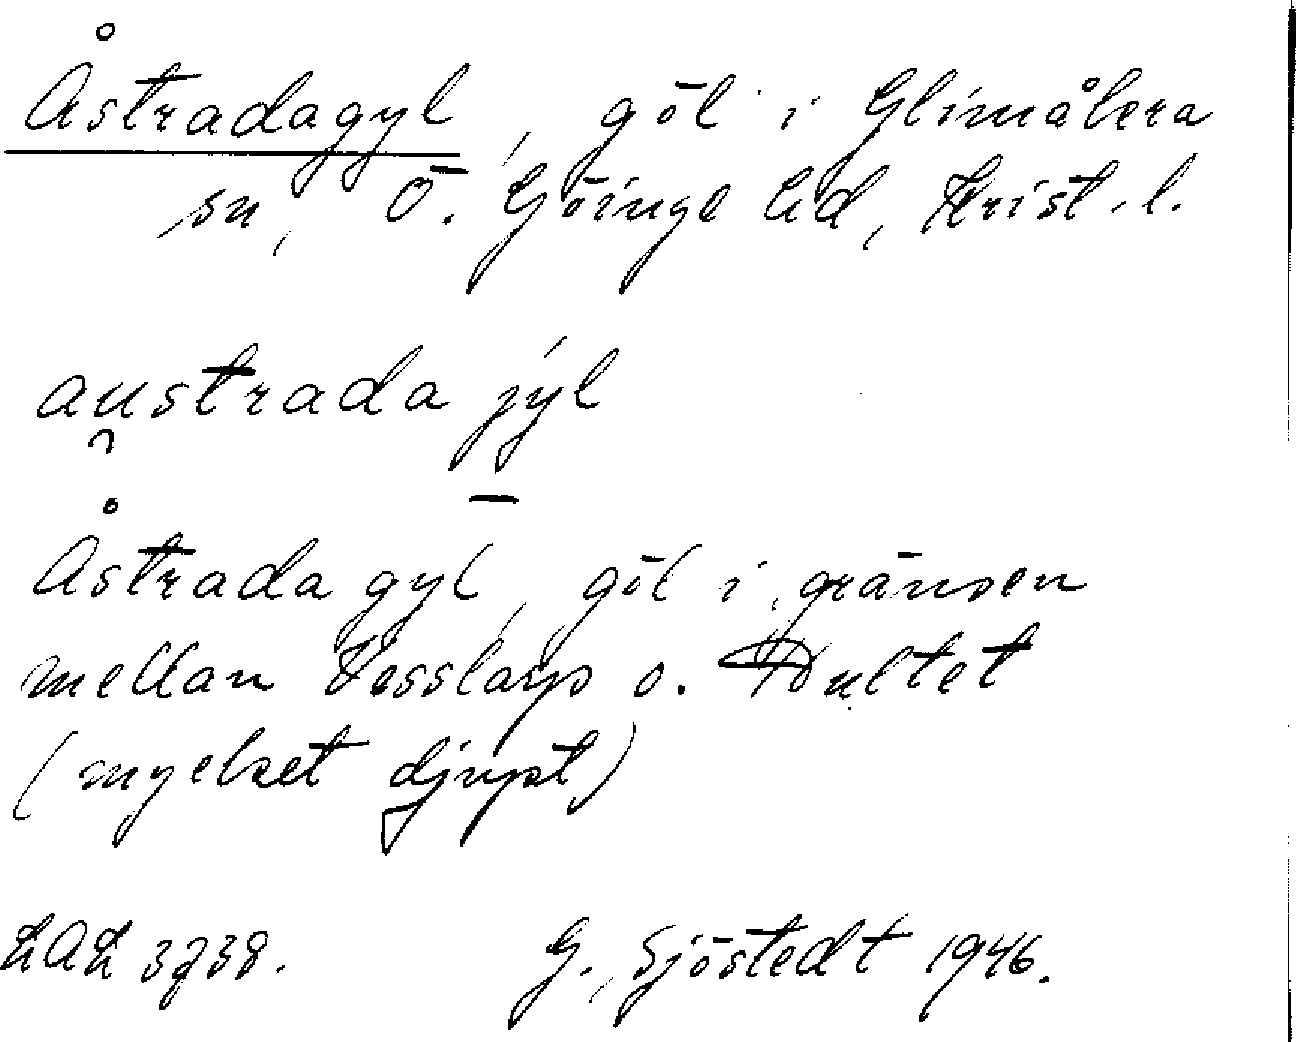 Åstradagyl, göl i Glimåkra
sn, Ö. Göinge hd, Krist. l.
au̯strada jýl
Åstrada gyl, göl i gränsen
mellan Vesslarp o. Dultet
(mycket djupt)
LAL 3738. G. Sjöstedt 1946.